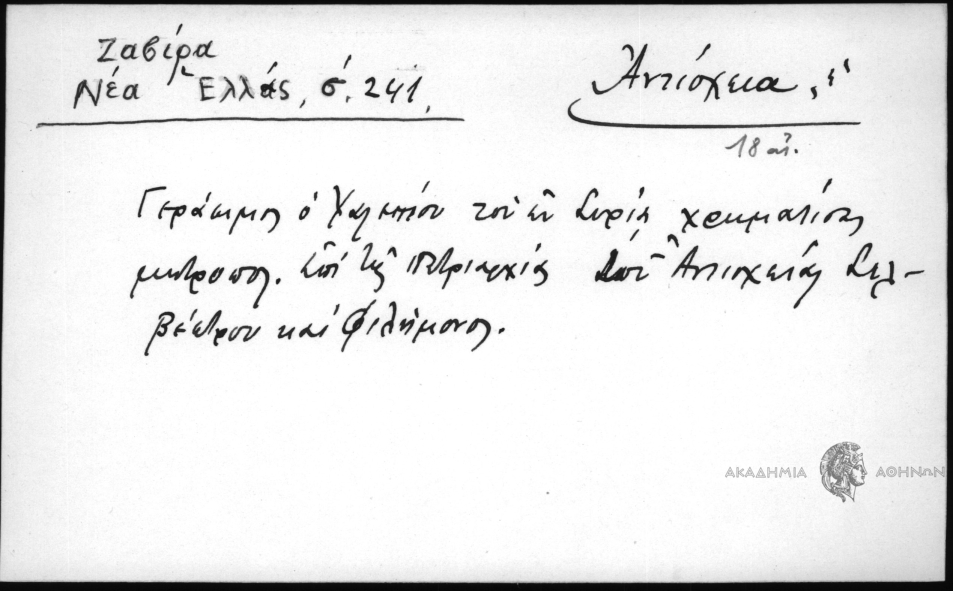 Ζαβίρα
Νέα Ἑλλάς, σ. 241.
Ἀντιόχεια, ἐ
18 αἰ.
Γεράσιμος ὁ Χαλεπίου τοῦ ἐν Συρίᾳ χρηματίσας
μητροπολ. ἐπὶ τῆς πατριαρχίας Ἀντιοχείας Σιλ-
βέστρου καὶ Φιλήμονος.
ΑΚΑΔΗΜΙΑ ΑΘΗΝΩΝ